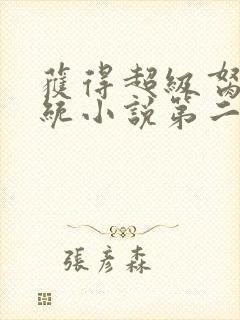 獲得超級努
統小說第二
張彥森